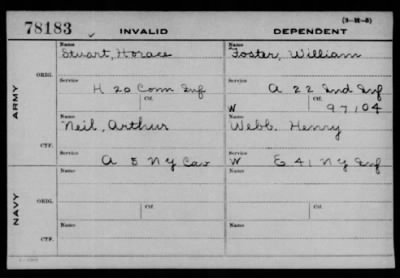 78183 INVALID DEPENDENT (3-M-5)
Name Name
Stuart, Horace Foster, William
ORIG. Service Service
H 20 Conn Inf A 22 Ind Inf
Ctf. Ctf.
W 97104
ARMY
Name Name
Neil, Arthur Webb, Henry
CTF. Service Service
A 5 NY Cav W E 41 NY Inf
Name Name
ORIG. Ctf. Ctf.
NAVY
Name Name
CTF.